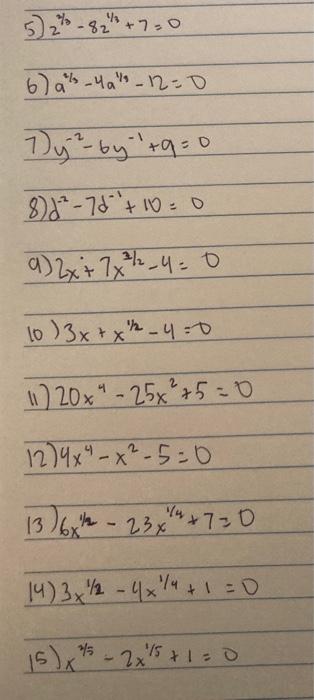 5) z^2/3 - 8z^1/3 + 7 = 0
6) a^2/3 - 4a^1/3 - 12 = 0
7) y^-2 - 6y^-1 + 9 = 0
8) d^-2 - 7d^-1 + 10 = 0
9) 2x + 7x^2/2 - 4 = 0
10) 3x + x^1/2 - 4 = 0
11) 20x^4 - 25x^2 + 5 = 0
12) 4x^4 - x^2 - 5 = 0
13) 6x^1/2 - 23x^1/4 + 7 = 0
14) 3x^1/2 - 4x^1/4 + 1 = 0
15) x^2/5 - 2x^1/5 + 1 = 0